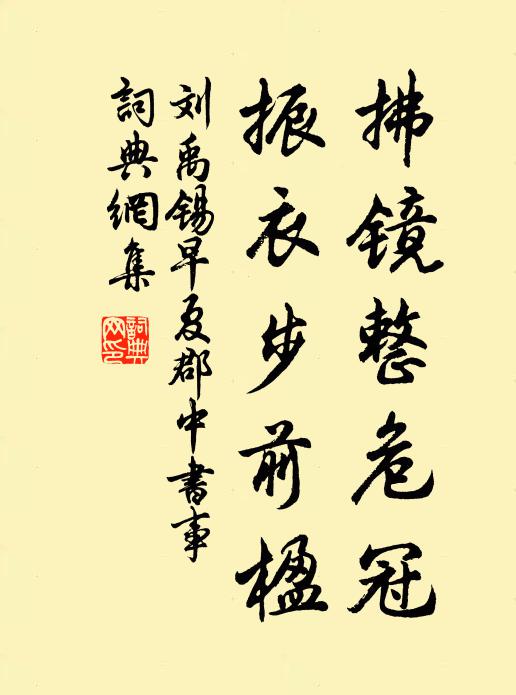 拂镜整危冠
振衣步前楹
刘禹锡早夏郡中书事
詞典網集
詞典网印